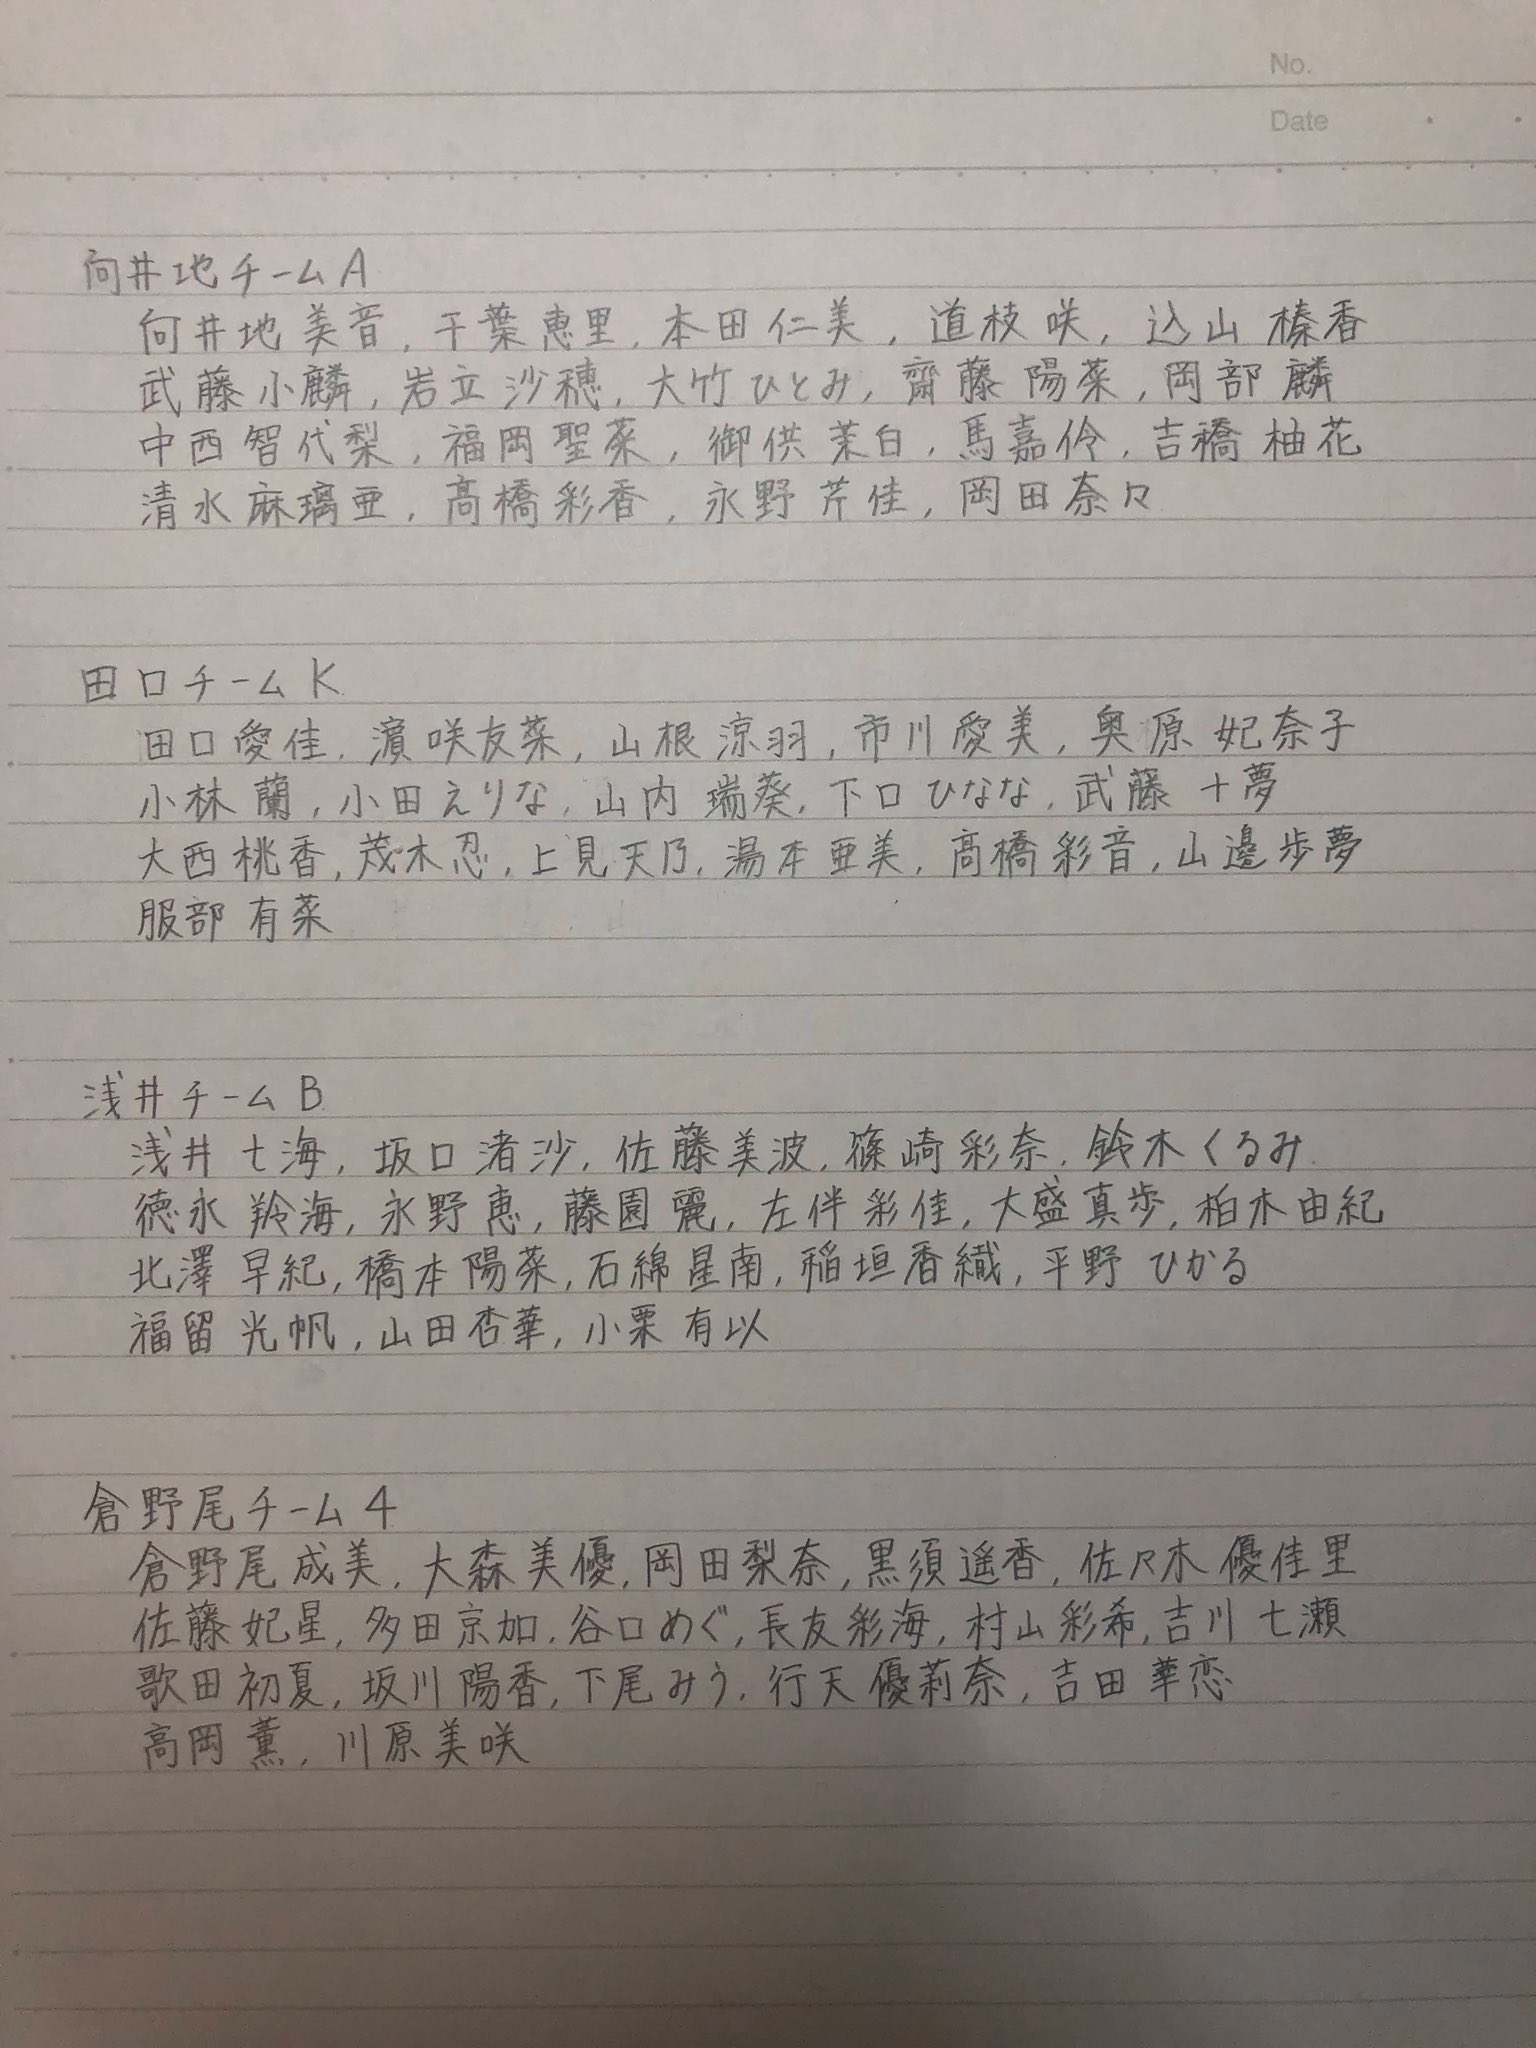 No.
Date
向井地チームA
向井地美音, 千葉恵里, 本田仁美, 道枝咲, 込山榛香
武藤小麟, 岩立沙穂, 大竹ひとみ, 齋藤陽菜, 岡部麟
中西智代梨, 福岡聖菜, 御供茉白, 馬嘉伶, 吉橋柚花
清水麻璃亜, 髙橋彩香, 永野芹佳, 岡田奈々
田口チームK
田口愛佳, 濵咲友菜, 山根涼羽, 市川愛美, 奥原妃奈子
小林蘭, 小田えりな, 山内瑞葵, 下口ひなな, 武藤十夢
大西桃香, 茂木忍, 上見天乃, 湯本亜美, 髙橋彩音, 山邊歩夢
服部有菜
浅井チームB
浅井七海, 坂口渚沙, 佐藤美波, 篠崎彩奈, 鈴木くるみ
徳永羚海, 永野恵, 藤園麗, 左伴彩佳, 大盛真歩, 柏木由紀
北澤早紀, 橋本陽菜, 石綿星南, 稲垣香織, 平野ひかる
福留光帆, 山田杏華, 小栗有以
倉野尾チーム4
倉野尾成美, 大森美優, 岡田梨奈, 黒須遥香, 佐々木優佳里
佐藤妃星, 多田京加, 谷口めぐ, 長友彩海, 村山彩希, 吉川七瀬
歌田初夏, 坂川陽香, 下尾みう, 行天優莉奈, 吉田華恋
高岡薫, 川原美咲